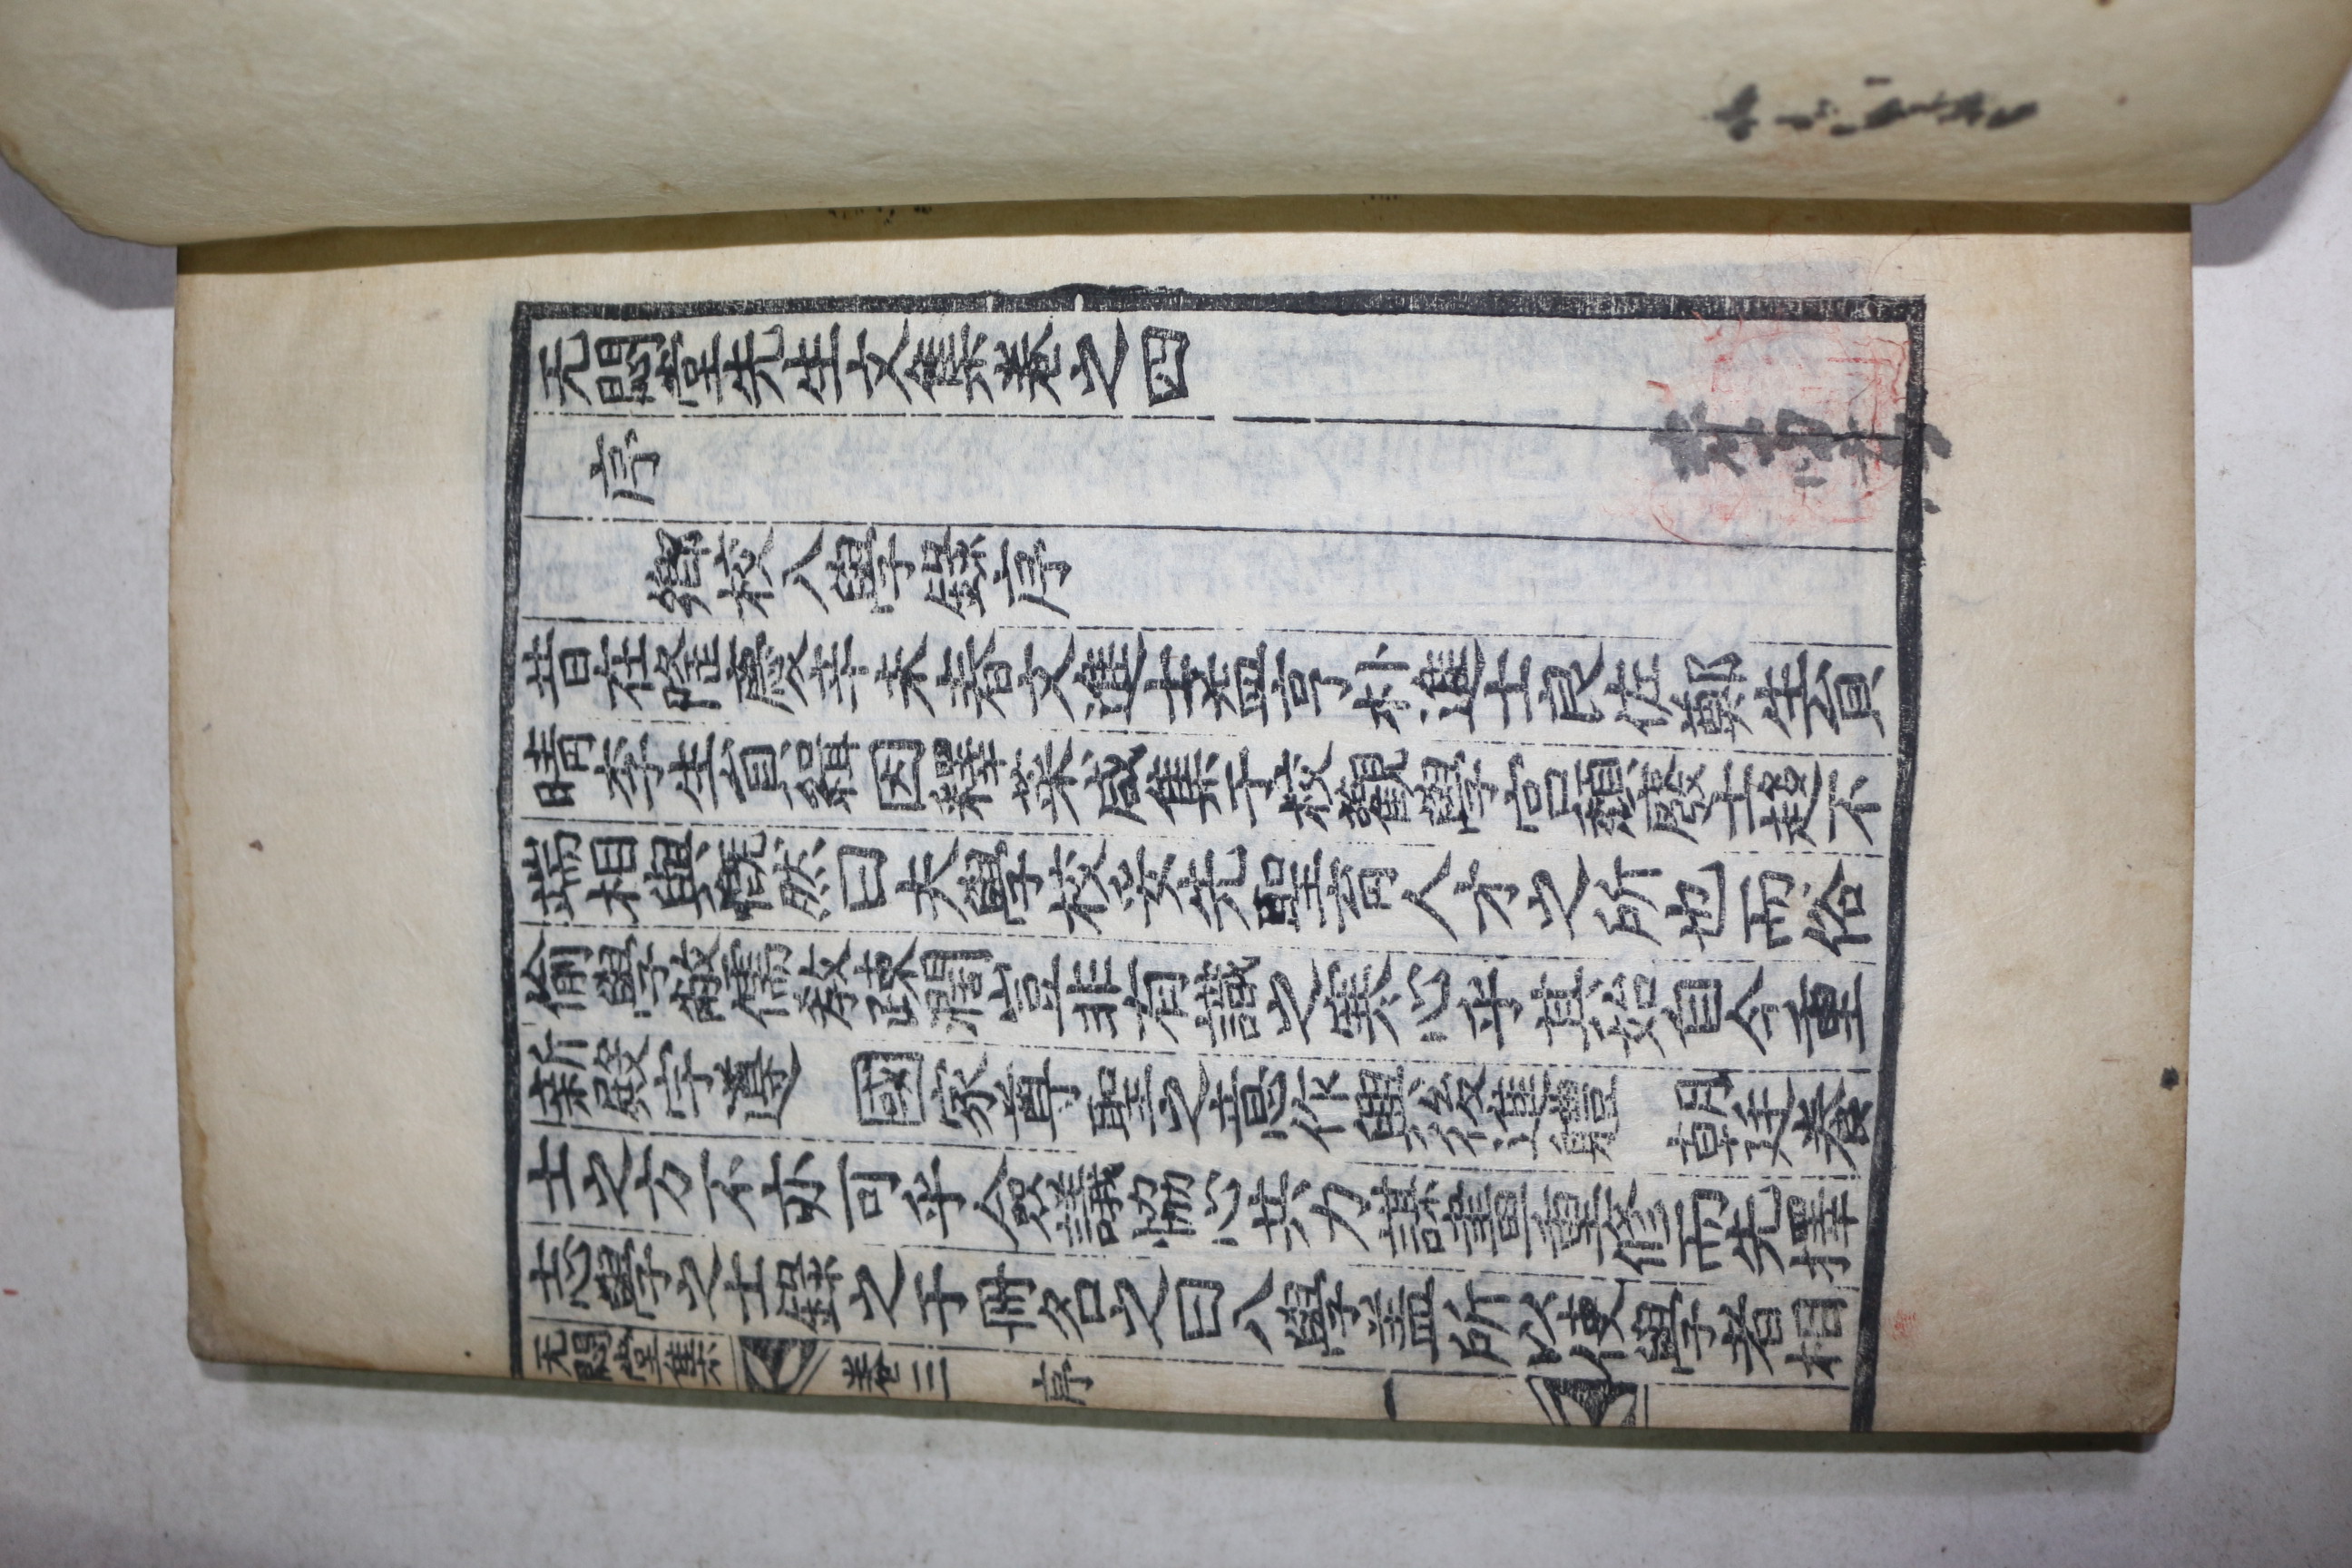 无悶堂先生文集卷之四
序
鄉校八學錄序
昔在隆慶辛未春文進士益亨朴進士良佐鄭生員
晴李生員緝因釋菜咸集于校觀學宮頹廢士趍不
端相與慨然曰夫學校妥先聖育人才之所也而俗
偷學敝儒教疎濶豈非有識之寒心乎其始自今重
新殿宇遵 國家尊聖之意作興後進體 朝廷養
士之方不亦可乎僉議恊心共力謀畫重修而先擇
志學之士錄之于冊名之曰八學盖所以使學者相
无悶堂集 卷三 序 一